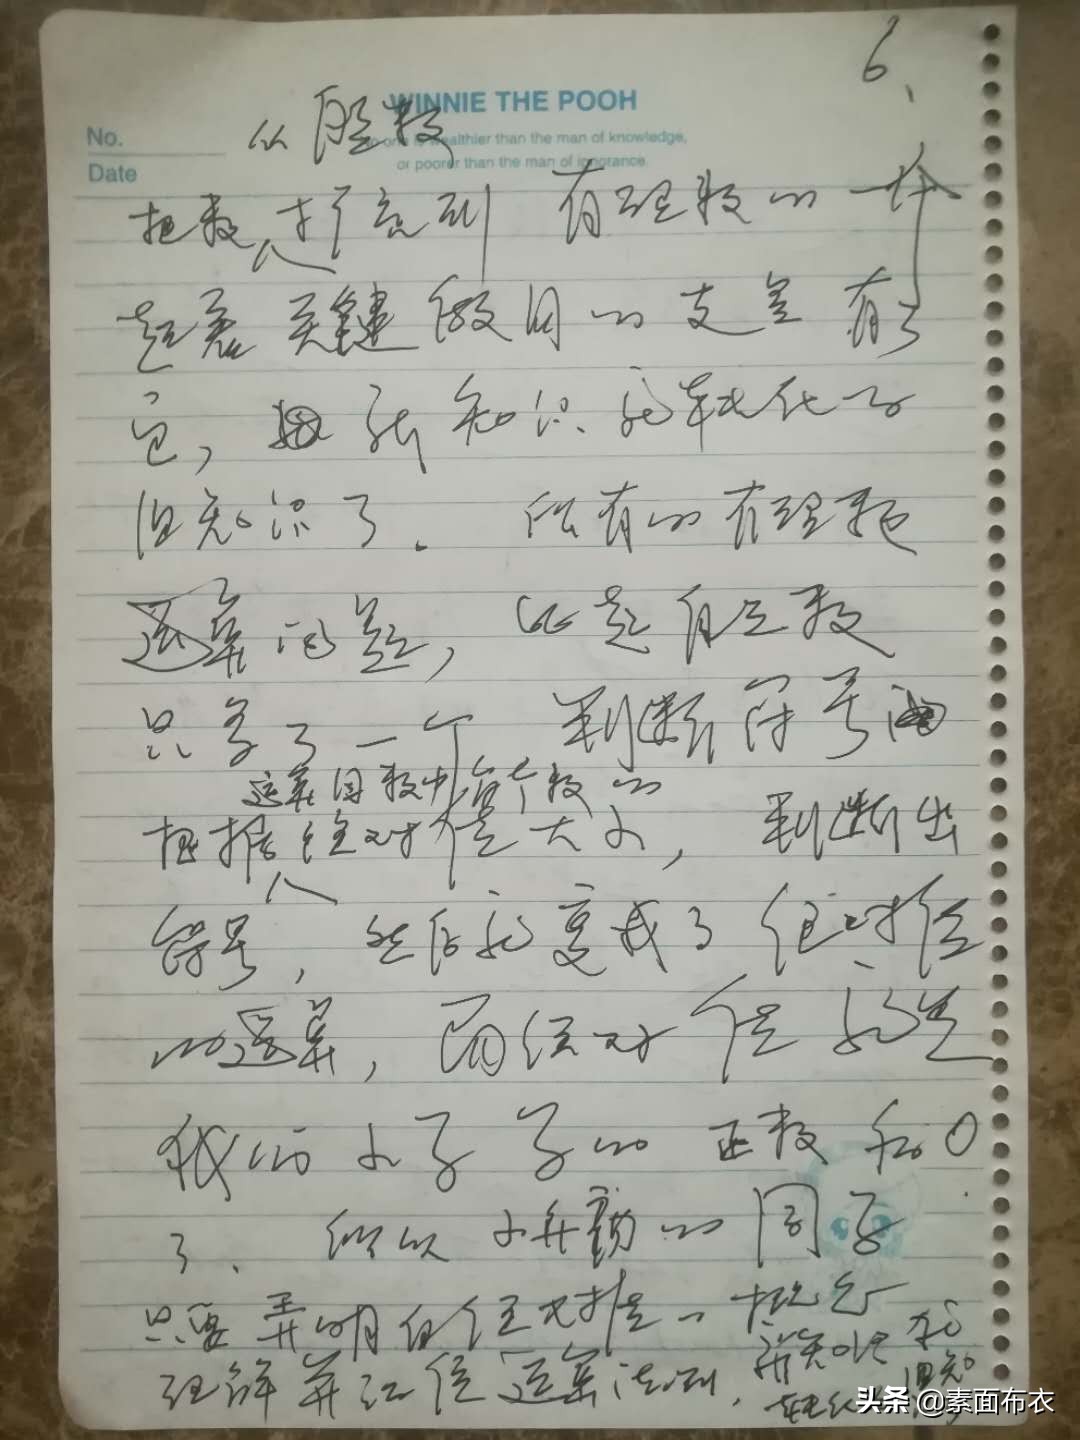 6、
WINNIE THE POOH
No.
no one is wealthier than the man of knowledge,
or poorer than the man of ignorance.
Date
从自然数
把数扩充到 有理数的一个
起着关键作用的支点 有了
它，新知识就转化为
旧知识了. 所有的有理数
运算问题，比起自然数
只多了一个 判断符号
运算因数中每个数的
根据绝对值大小，判断出
符号，然后就变成了绝对值
的运算，而绝对值就是
我们小学学的 正数和0
了. 所以 小升初的同学
只要弄明白绝对值的概念
理解并记住运算法则，新知识就
转化旧知
头条 @素面布衣